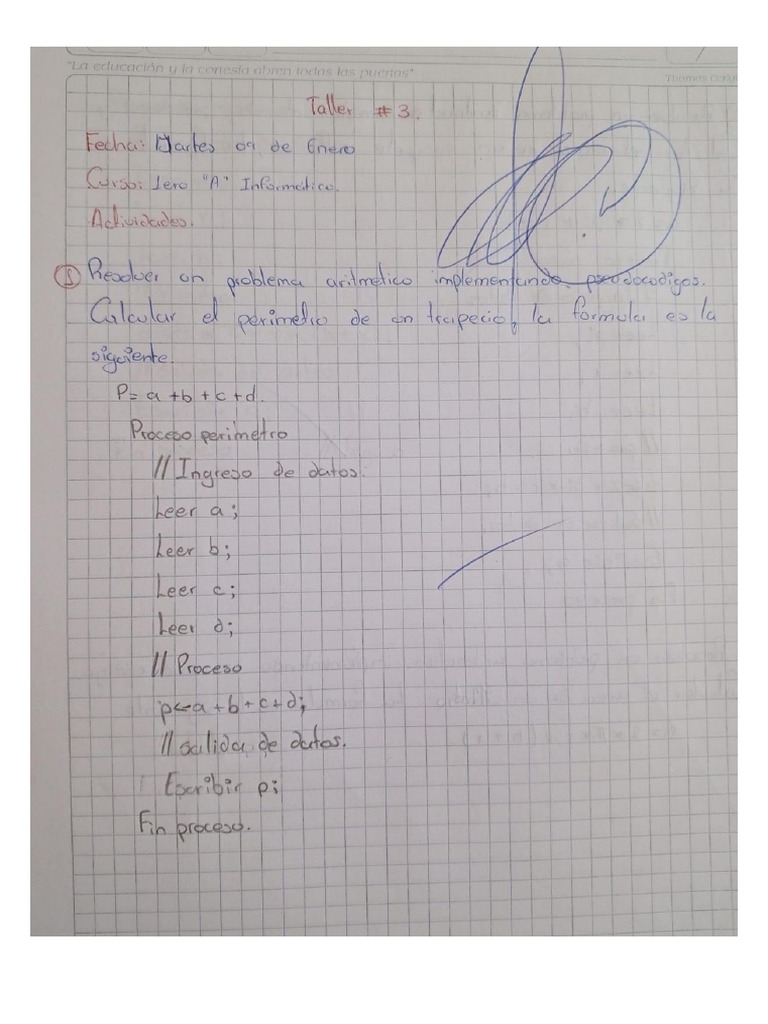 "La educación y la cortesía abren todas las puertas"
Thomas
Taller #3.
Fecha: Martes 09 de Enero
Curso: 1ero "A" Informatica.
Actividades.
① Resolver un problema aritmetico implementando pseudocodigos.
Calcular el perimetro de un trapecio, la formula es la
siguiente.
P= a+b+c+d.
Proceso perimetro
// Ingreso de datos.
Leer a;
Leer b;
Leer c;
Leer d;
// Proceso
p<-a+b+c+d;
// salida de datos.
Escribir p;
Fin proceso.